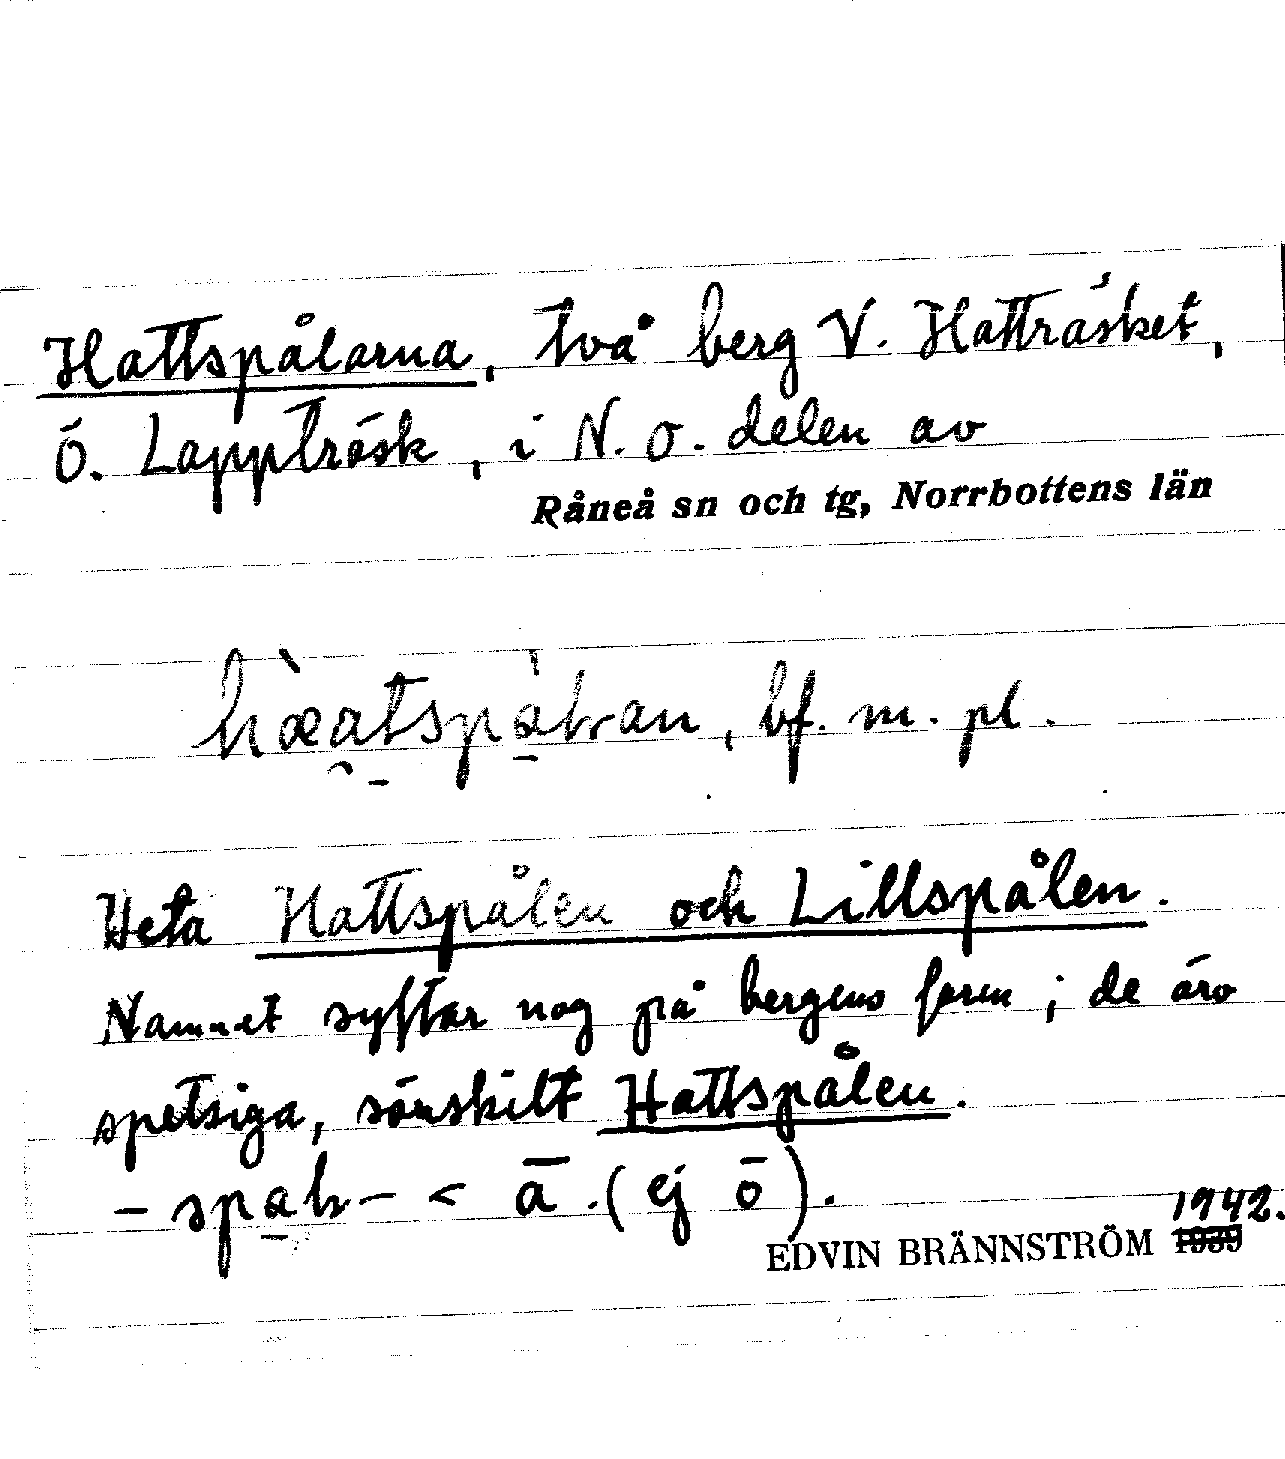 Hattspålarna, två berg V. Hatträsket,
Ö. Lappträsk, i N. O. delen av
Råneå sn och tg, Norrbottens län
bf. m. pl.
Heta Hattspålen och Lillspålen.
Namnet syftar nog på bergens form; de äro
spetsiga, särskilt Hattspålen.
< ā. (ej ō).
EDVIN BRÄNNSTRÖM 1939 1942.